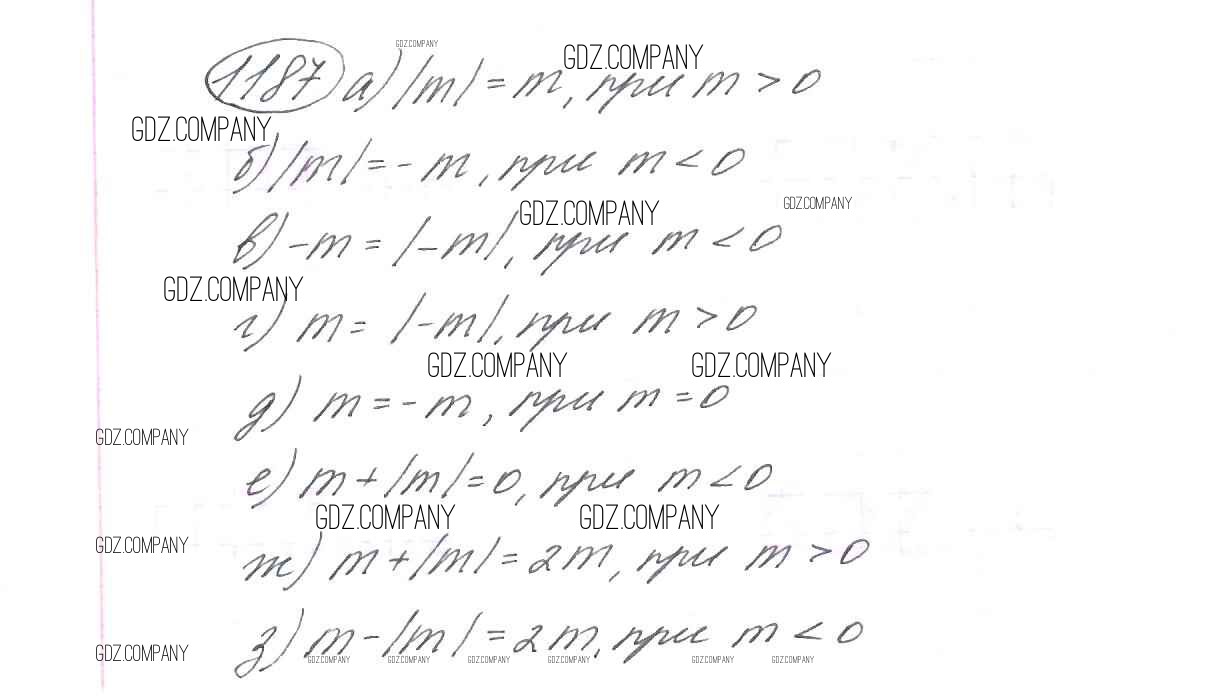 GDZ.COMPANY
GDZ.COMPANY
1187 а) |m| = m, при m > 0
GDZ.COMPANY
б) |m| = - m, при m < 0
GDZ.COMPANY
GDZ.COMPANY
в) -m = |-m|, при m < 0
GDZ.COMPANY
г) m = |-m|, при m > 0
GDZ.COMPANY GDZ.COMPANY
д) m = -m, при m = 0
GDZ.COMPANY
е) m + |m| = 0, при m < 0
GDZ.COMPANY GDZ.COMPANY
GDZ.COMPANY
ж) m + |m| = 2m, при m > 0
з) m - |m| = 2m, при m < 0
GDZ.COMPANY
GDZ.COMPANY GDZ.COMPANY GDZ.COMPANY GDZ.COMPANY GDZ.COMPANY GDZ.COMPANY